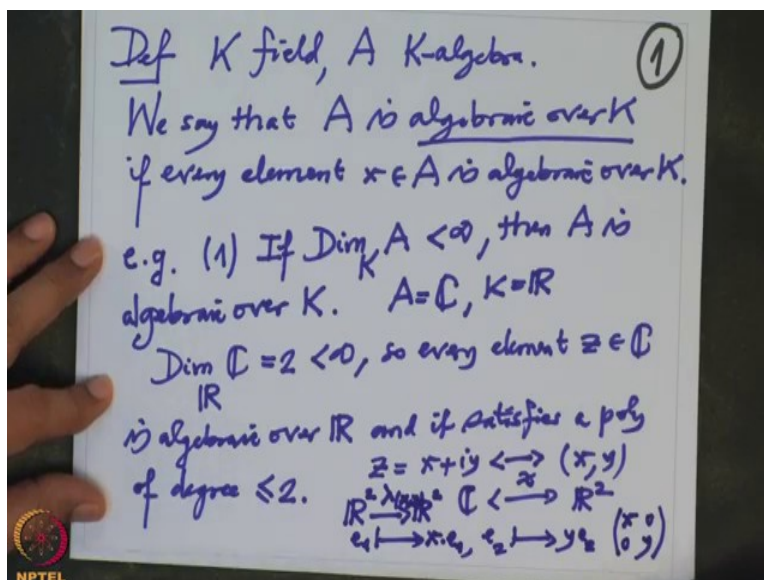 Def K field, A K-algebra. ①
We say that A is algebraic over K
if every element x ∈ A is algebraic over K.
e.g. (1) If Dim_K A < ∞, then A is
algebraic over K. A = ℂ, K = ℝ
Dim_ℝ ℂ = 2 < ∞, so every element z ∈ ℂ
is algebraic over ℝ and if satisfies a poly
of degree ≤ 2. z = x + iy ⟷ (x, y)
ℝ² → ℝ² ℂ ⟷ ℝ²
e₁ ⟼ x·e₁, e₂ ⟼ y e₂ (x 0
0 y)
NPTEL